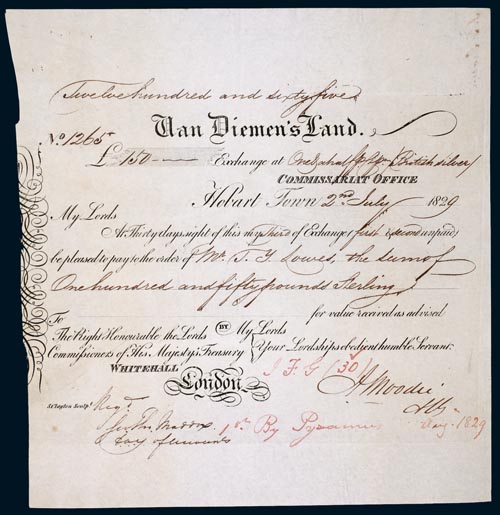 Twelve hundred and sixty five
No. 1265 Van Diemen's Land.
£150 Exchange at One & a half P Ct. British silver
COMMISSARIAT OFFICE
Hobart Town 2nd July 1829
My Lords
At Thirty days sight of this my Third of Exchange (first & second unpaid)
be pleased to pay to the order of Mr. T. Y. Lowes, the sum of
One hundred and fifty pounds Sterling
for value received as advised
To
The Right Honourable the Lords BY My Lords
Commissioners of His Majesty's Treasury Your Lordships obedient humble Servant
WHITEHALL J F G (30)
London A Moodie
S Clayton Sculpt. Regd.
Maddox 1st By Pyramus Aug. 1829